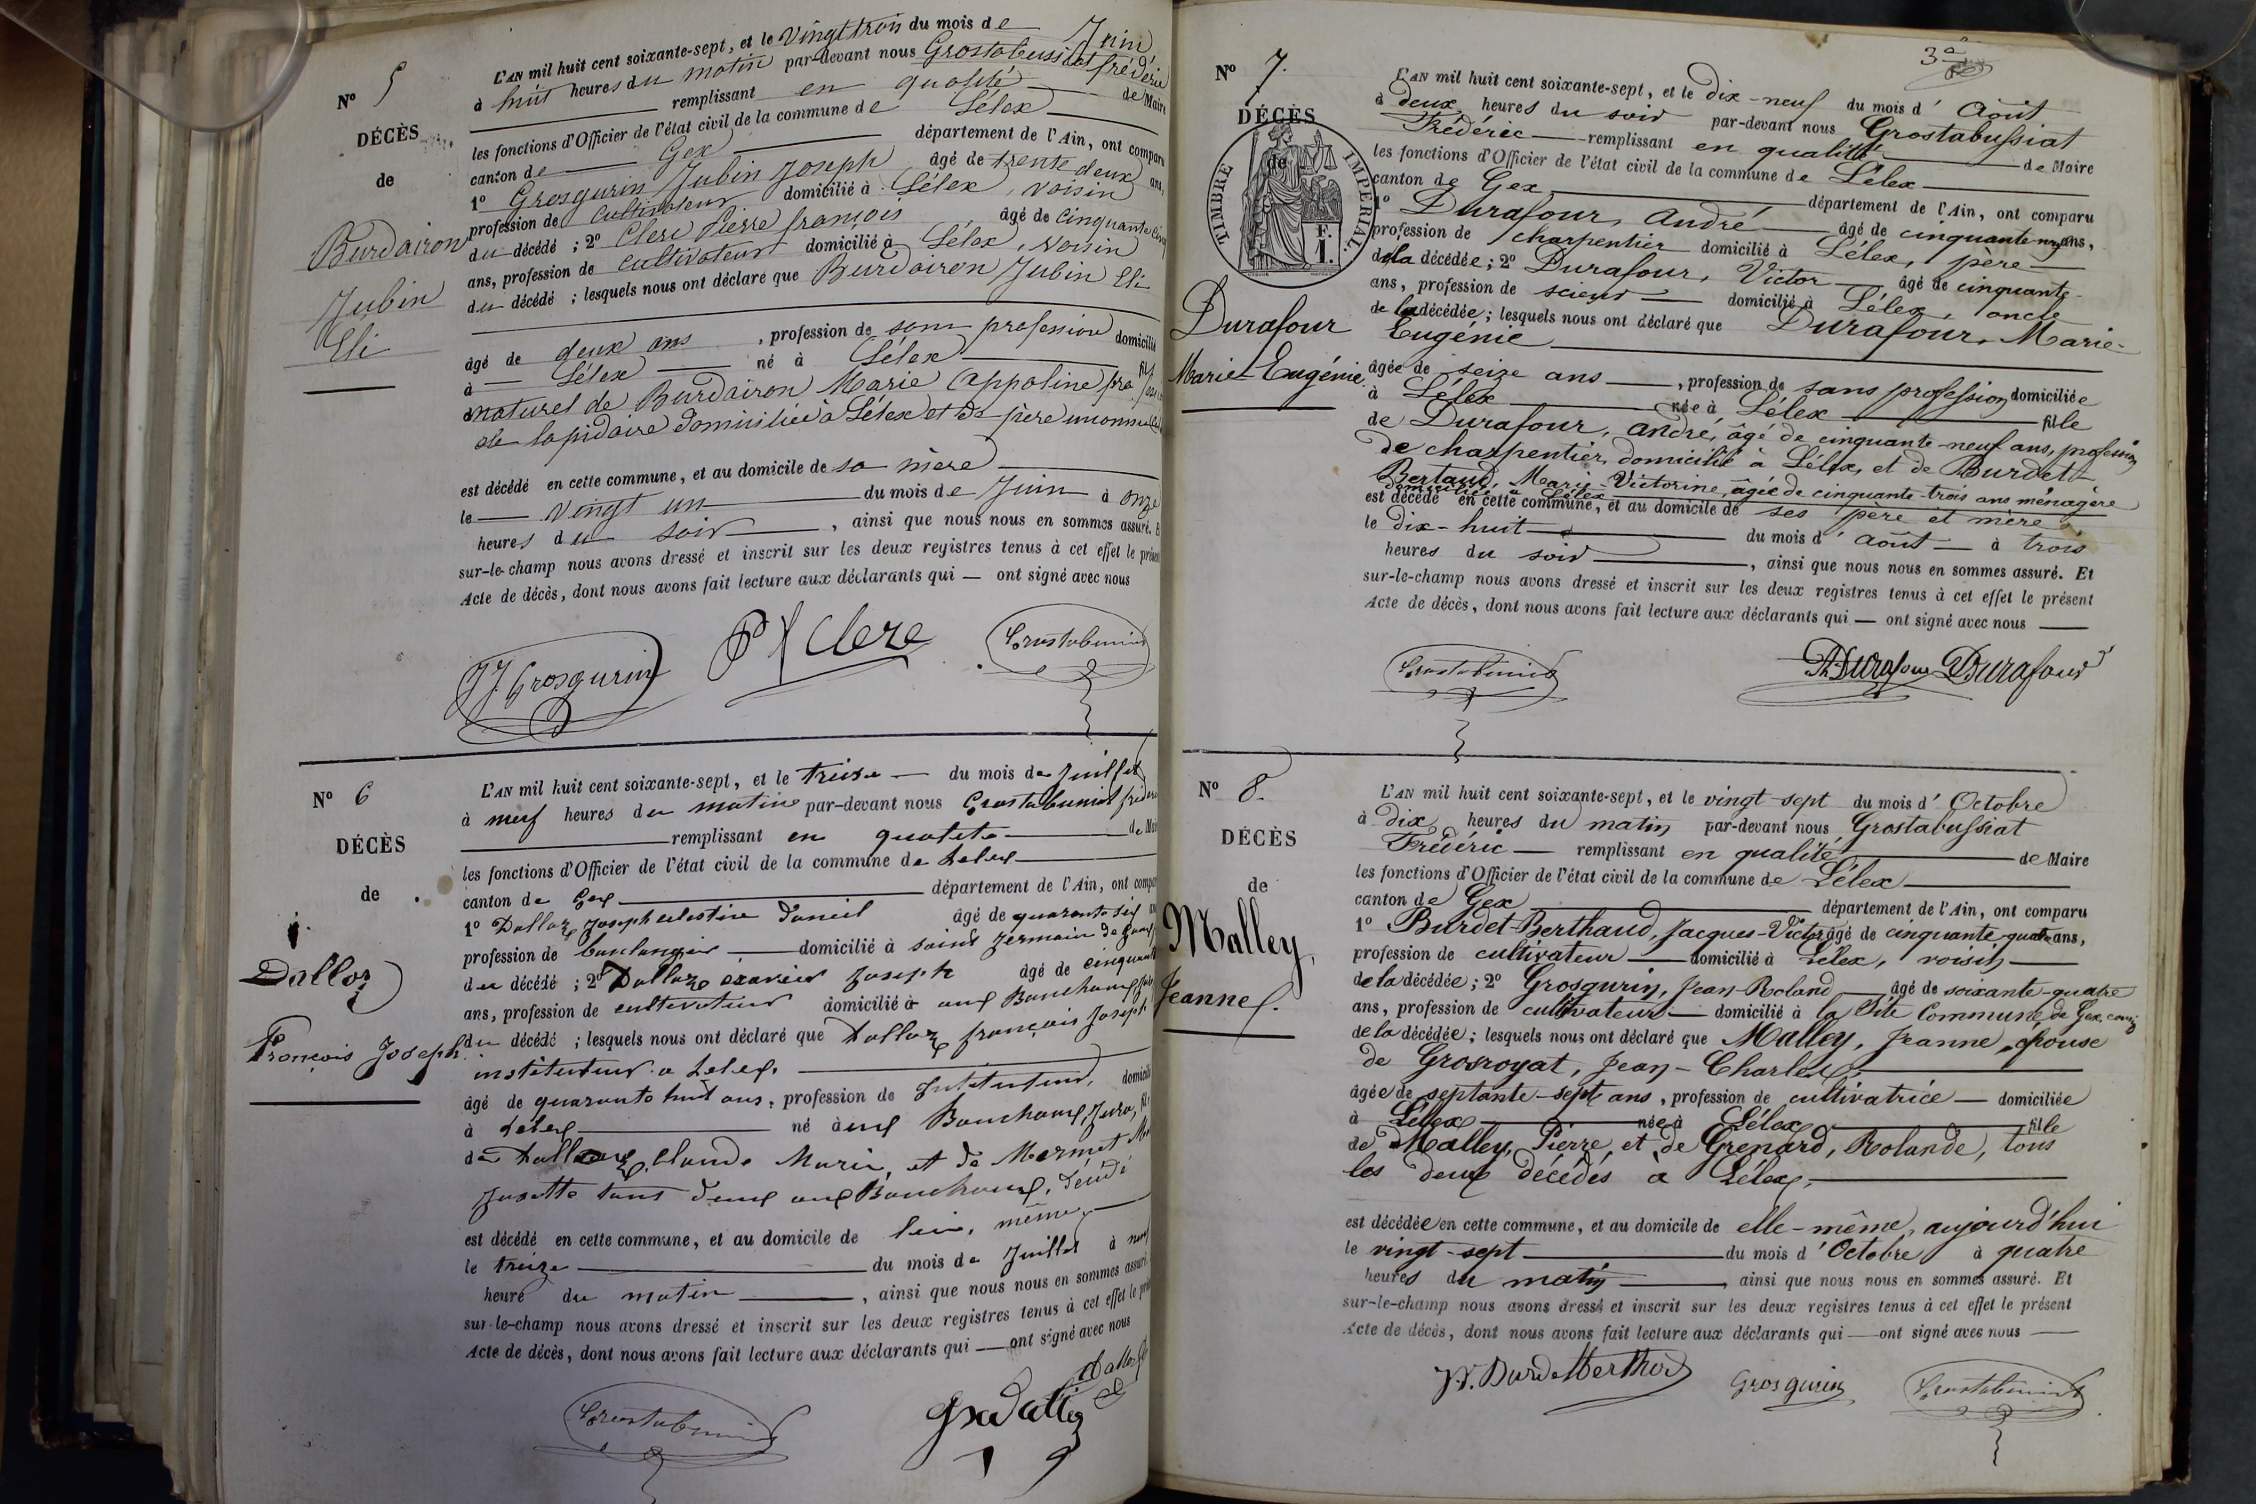 N° 5
DÉCÈS
de
Burdairon
Jubin
Eli
L'AN mil huit cent soixante-sept, et le Vingt trois du mois de Juin
à huit heures du matin par-devant nous Grostabussiat frédéric
remplissant en qualité de Maire
les fonctions d'Officier de l'état civil de la commune de Lélex
canton de Gex département de l'Ain, ont comparu
1° Grosgurin Jubin Joseph âgé de trente deux ans,
profession de cultivateur domicilié à Lélex, voisin
du décédé ; 2° Clerc Pierre françois âgé de cinquante cinq
ans, profession de cultivateur domicilié à Lélex, voisin
du décédé ; lesquels nous ont déclaré que Burdairon Jubin Eli
âgé de deux ans, profession de sans profession domicilié
à Lélex né à Lélex fils
naturel de Burdairon Marie Appoline
de lapidaire domiciliée à Lélex et de père inconnu
est décédé en cette commune, et au domicile de sa mère
le vingt un du mois de Juin à onze
heures du soir, ainsi que nous nous en sommes assuré. Et
sur-le-champ nous avons dressé et inscrit sur les deux registres tenus à cet effet le présent
Acte de décès, dont nous avons fait lecture aux déclarants qui — ont signé avec nous
JJ Grosgurin
P f Clerc
Grostabussiat
N° 6
DÉCÈS
de
Dalloz
François Joseph
L'AN mil huit cent soixante-sept, et le treize du mois de Juillet
à neuf heures du matin par-devant nous Grostabussiat fréderic
remplissant en qualité de Maire
les fonctions d'Officier de l'état civil de la commune de Lelex
canton de Gex département de l'Ain, ont comparu
1° Dalloz Joseph celestin Daniel âgé de quarante six ans
profession de boulanger domicilié à saint germain de Joux
du décédé ; 2° Dalloz xavier Joseph âgé de cinquante
ans, profession de cultivateur domicilié à aux Bouchoux Jura
du décédé ; lesquels nous ont déclaré que Dalloz françois Joseph
instituteur a Lelex.
âgé de quarante huit ans, profession de Instituteur, domicilié
à Lelex né à aux Bouchoux, Jura, fils
de Dalloz, Claude Marie, et de Mermet
Josette tous deux aux Bouchoux, décédé
est décédé en cette commune, et au domicile de lui, même,
le treize du mois de Juillet à neuf
heure du matin, ainsi que nous nous en sommes assuré
sur-le-champ nous avons dressé et inscrit sur les deux registres tenus à cet effet le présent
Acte de décès, dont nous avons fait lecture aux déclarants qui — ont signé avec nous
Grostabussiat
Dalloz
3e
N° 7.
DÉCÈS
de
TIMBRE IMPÉRIAL.
F.
1.
Durafour
Marie-Eugénie
L'AN mil huit cent soixante-sept, et le dix-neuf du mois d'Août
à deux heures du soir par-devant nous Grostabussiat
Frédéric remplissant en qualité de Maire
les fonctions d'Officier de l'état civil de la commune de Lélex
canton de Gex département de l'Ain, ont comparu
1° Durafour, André âgé de cinquante-neuf ans,
profession de charpentier domicilié à Lélex, père
de la décédée ; 2° Durafour, Victor âgé de cinquante-
ans, profession de scieur domicilié à Lélex, oncle
de la décédée ; lesquels nous ont déclaré que Durafour, Marie-
Eugénie
âgée de seize ans, profession de sans profession domiciliée
à Lélex née à Lélex fille
de Durafour, André, âgé de cinquante-neuf ans, profession
de charpentier, domicilié à Lélex, et de Burdet
Bertaud, Marie-Victorine, âgée de cinquante-trois ans ménagère
domiciliée à Lélex
est décédé en cette commune, et au domicile de ses père et mère
le dix-huit du mois d'août à trois
heures du soir, ainsi que nous nous en sommes assuré. Et
sur-le-champ nous avons dressé et inscrit sur les deux registres tenus à cet effet le présent
Acte de décès, dont nous avons fait lecture aux déclarants qui — ont signé avec nous
Grostabussiat
Durafour Durafour
N° 8.
DÉCÈS
de
Malley,
Jeanne.
L'AN mil huit cent soixante-sept, et le vingt-sept du mois d'Octobre
à dix heures du matin par-devant nous Grostabussiat
Frédéric remplissant en qualité de Maire
les fonctions d'Officier de l'état civil de la commune de Lélex
canton de Gex département de l'Ain, ont comparu
1° Burdet-Berthaud, Jacques-Victor âgé de cinquante-quatre ans,
profession de cultivateur domicilié à Lélex, voisin
de la décédée ; 2° Grosgurin, Jean-Roland âgé de soixante-quatre
ans, profession de cultivateur domicilié à la Dite Commune de Gex,
de la décédée ; lesquels nous ont déclaré que Malley, Jeanne, épouse
de Grosroyat, Jean-Charles,
âgée de septante-sept ans, profession de cultivatrice domiciliée
à Lélex née à Lélex fille
de Malley, Pierre, et de Grenard, Rolande, tous
les deux décédés à Lélex,
est décédée en cette commune, et au domicile de elle-même, aujourd'hui
le vingt-sept du mois d'Octobre à quatre
heures du matin, ainsi que nous nous en sommes assuré. Et
sur-le-champ nous avons dressé et inscrit sur les deux registres tenus à cet effet le présent
Acte de décès, dont nous avons fait lecture aux déclarants qui — ont signé avec nous
Grosgurin
Grostabussiat